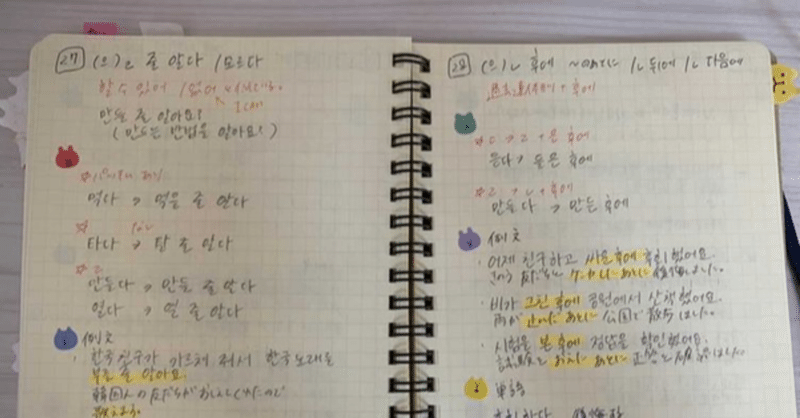 27 (으)ㄹ 줄 알다 / 모르다
할 수 있어 / 없어
I can
만들 줄 알아요?
(만드는 방법을 알아요?)
먹다 → 먹을 줄 알다
타다 → 탈 줄 알다
만들다 → 만들 줄 알다
열다 → 열 줄 알다
例文
한국 친구가 가르쳐 줘서 한국 노래를
부를 줄 알아요.
28 (으)ㄴ 후에 ~のあとに /ㄴ 뒤에 /ㄴ 다음에
過去連体形 + 후에
ㄷ → ㄹ + 은 후에
듣다 → 들은 후에
ㄹ → ㄴ + 후에
만들다 → 만든 후에
例文
· 어제 친구하고 싸운 후에 후회했어요.
きのう 友だちと ケンカしたあとに 後悔しました。
· 비가 그친 후에 공원에서 산책했어요.
雨が 止んだあとに 公園で 散歩しました。
· 시험을 본 후에 정답을 확인했어요.
試験を おえたあとに 正答を 確認しました
単語